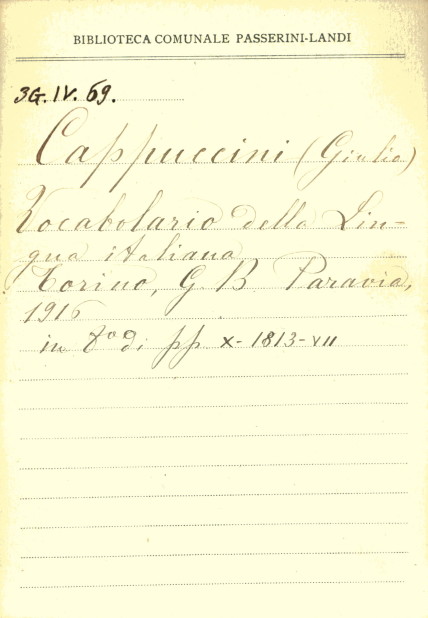 BIBLIOTECA COMUNALE PASSERINI-LANDI
3G. IV. 69.
Cappuccini (Giulio)
Vocabolario della Lin-
gua italiana
Torino, G B Paravia,
1916
in 8° di pp X-1813-VII